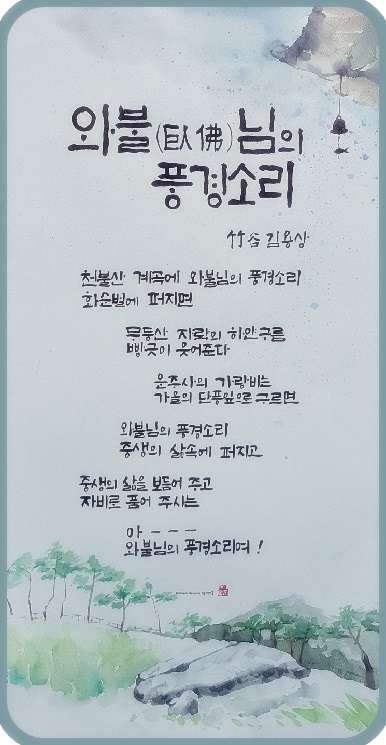 와불(臥佛)님의
풍경소리
竹谷 김용상
천불산 계곡에 와불님의 풍경소리
화순벌에 퍼지면
무등산 자락의 하얀구름
삥긋이 웃어준다
운주사의 가랑비는
가을의 단풍잎으로 구르면
와불님의 풍경소리
중생의 삶속에 퍼지고
중생의 삶을 보듬어 주고
자비로 품어 주시는
아 ---
와불님의 풍경소리여!